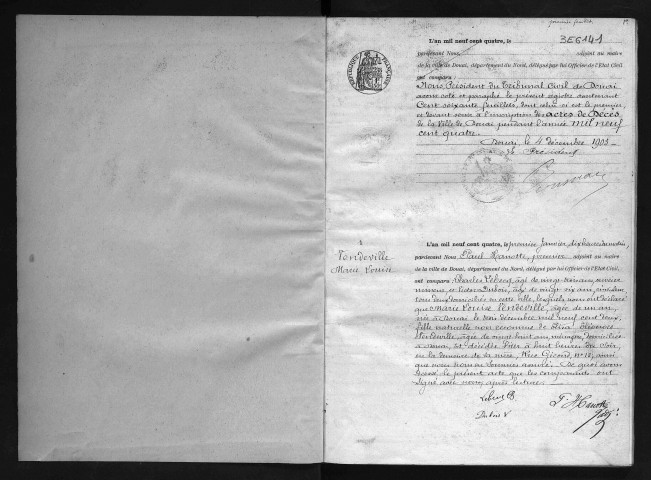 première feuillet
L'an mil neuf cent quatre, le 3E6141
pardevant Nous, adjoint au maire
de la ville de Douai, département du Nord, délégué par lui Officier de l'Etat Civil
ont comparu :
Nous, Président du Tribunal Civil de Douai
avons coté et paraphé le présent registre contenant
Cent soixante feuillets, dont celui ci est le premier,
et devant servir à l'inscription des actes de Décès
de la Ville de Douai pendant l'année Mil neuf
cent quatre.
Douai, le 4 décembre 1903
Le Président
RÉPUBLIQUE FRANÇAISE
1
Vendeville
Marie Louise
L'an mil neuf cent quatre, le premier Janvier, dix heures du matin,
pardevant Nous Paul Hanotte, premier adjoint au maire
de la ville de Douai, département du Nord, délégué par lui Officier de l'Etat Civil,
ont comparu Charles Lebecq, âgé de vingt
Dubois, âgé de vingt six ans,
tous deux domiciliés en cette ville, lesquels nous ont déclaré
que Marie Louise Vendeville, âgée de un an,
née à Douai le décembre mil neuf cent deux,
fille naturelle non reconnue de
Vendeville, âgée de vingt huit ans, ménagère, domiciliée
à Douai, est décédée hier à huit heures du soir,
en la demeure de sa mère, Rue Giroud, n° 12, ainsi
que nous nous en sommes assuré. De quoi avons
dressé le présent acte que les comparants ont
signé avec nous, après lecture.
Dubois V
P. Hanotte